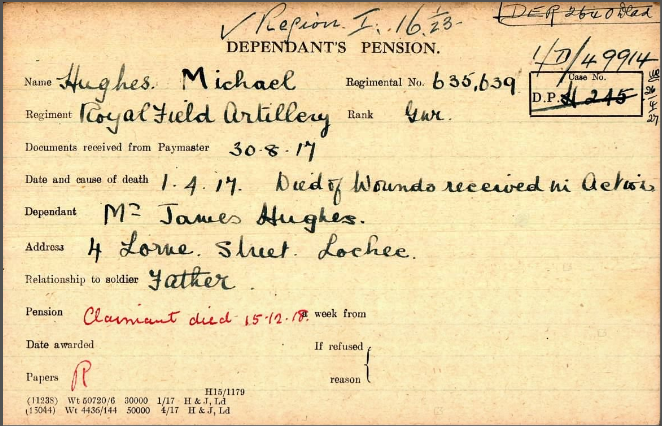 ✓ Region I. 16/1/23.
DER 2640 Dead
DEPENDANT'S PENSION.
1/D/49914
Name Hughes. Michael Regimental No. 635,639
Case No.
D.P. 245
26/4/27
Regiment Royal Field Artillery Rank Gnr.
Documents received from Paymaster 30.8.17
Date and cause of death 1.4.17. Died of Wounds received in Action
Dependant Mr James Hughes.
Address 4 Lorne. Street. Lochee.
Relationship to soldier Father.
Pension Claimant died 15.12.18. week from
Date awarded If refused
Papers R reason
H15/1179
(11238) Wt 50720/6 30000 1/17 H & J, Ld
(15044) Wt 4436/144 50000 4/17 H & J, Ld